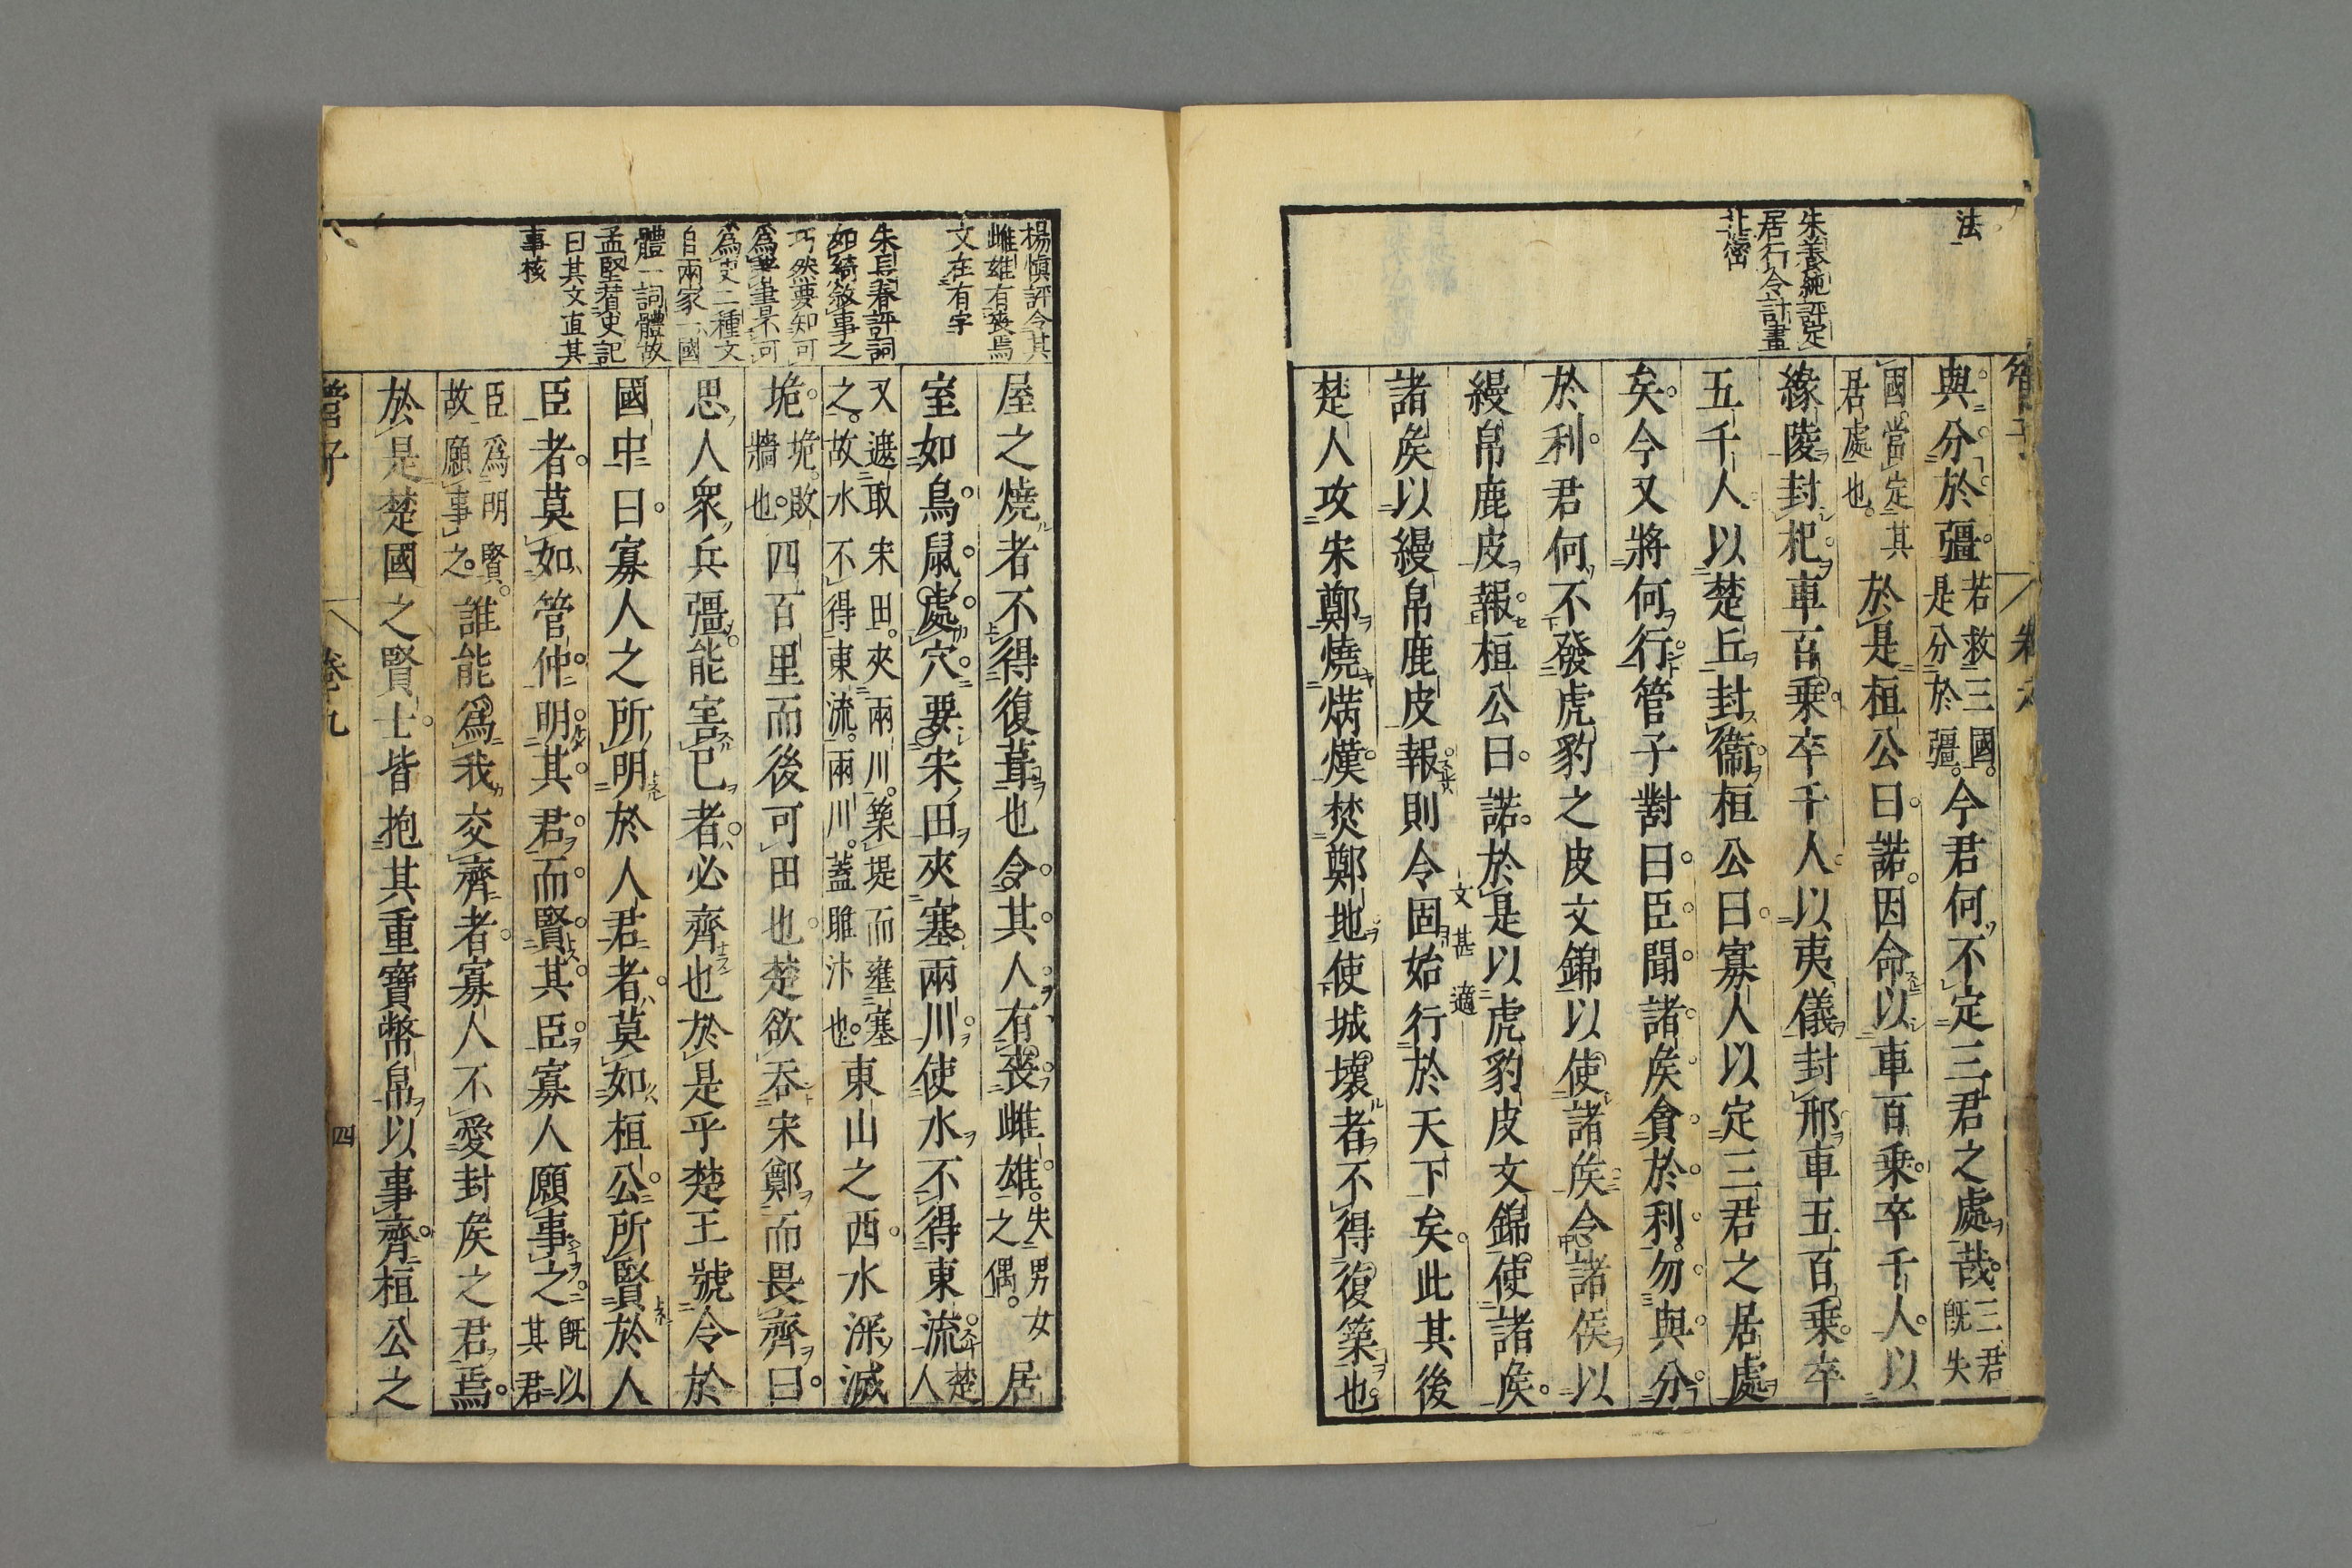 法
朱養純評定
居行令計畫
非密
與分於彊若救三國
是分於彊今君何不定三君之處哉三君
既失
國當定其
居處也於是桓公曰諾因命以車百乘卒千人以
緣陵封杞車百乘卒千人以夷儀封邢車五百乘卒
五千人以楚丘封衞桓公曰寡人以定三君之居處
矣今又將何行管子對曰臣聞諸矦貪於利勿與分
於利君何不發虎豹之皮文錦以使諸矦令諸侯以
縵帛鹿皮報桓公曰諾於是以虎豹皮文錦使諸矦
諸矦以縵帛鹿皮報則令固始行於天下矣此其後
楚人攻宋鄭燒焫熯焚鄭地使城壞者不得復築也
楊慎評令其
雌雄有喪焉
文在有字
朱長春評詞
如綺敘事之
巧然要知可
曰其文直其
事核
屋之燒者不得復葺也令其人有喪雌雄失男女
之偶居
室如鳥鼠處穴要宋田夾塞兩川使水不得東流楚
人
又遮取宋田夾兩川築堤而壅塞
之故水不得東流兩川蓋雎汴也東山之西水深滅
垝垝敗
牆也四百里而後可田也楚欲吞宋鄭而畏齊曰
思人衆兵彊能害已者必齊也於是乎楚王號令於
國中曰寡人之所明於人君者莫如桓公所賢於人
臣者莫如管仲明其君而賢其臣寡人願事之既以
其君
臣爲明賢
故願事之誰能爲我交齊者寡人不愛封矦之君焉
於是楚國之賢士皆抱其重寶幣帛以事齊桓公之
管子
卷九
四